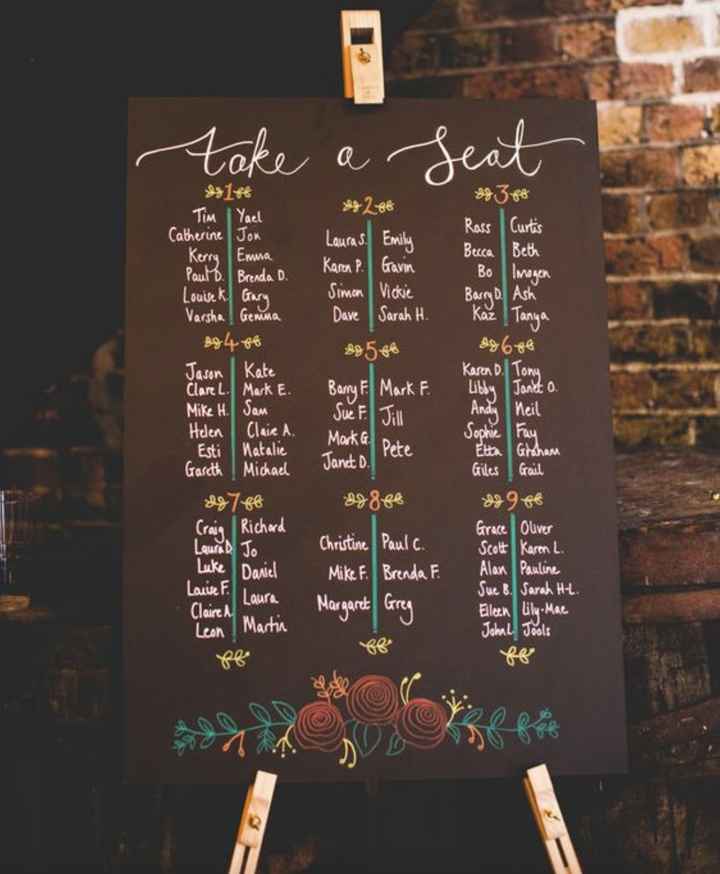 take a seat
1
Tim Yael
Catherine Jon
Kerry Emma
Paul D. Brenda D.
Louise K. Gary
Varsha Gemma
2
Laura S. Emily
Karen P. Gavin
Simon Vickie
Dave Sarah H.
3
Ross Curtis
Becca Beth
Bo Imogen
Barry D. Ash
Kaz Tanya
4
Jason Kate
Clare L. Mark E.
Mike H. Sam
Helen Claire A.
Esti Natalie
Gareth Michael
5
Barry F. Mark F.
Sue F. Jill
Mark G. Pete
Janet D.
6
Karen D. Tony
Libby Janet O.
Andy Neil
Sophie Fay
Etta Graham
Giles Gail
7
Craig Richard
Laura D. Jo
Luke Daniel
Louise F. Laura
Claire A. Martin
Leon
8
Christine Paul C.
Mike F. Brenda F.
Margaret Greg
9
Grace Oliver
Scott Karen L.
Alan Pauline
Sue B. Sarah H-L.
Eileen Lily-Mae
John L. Jools